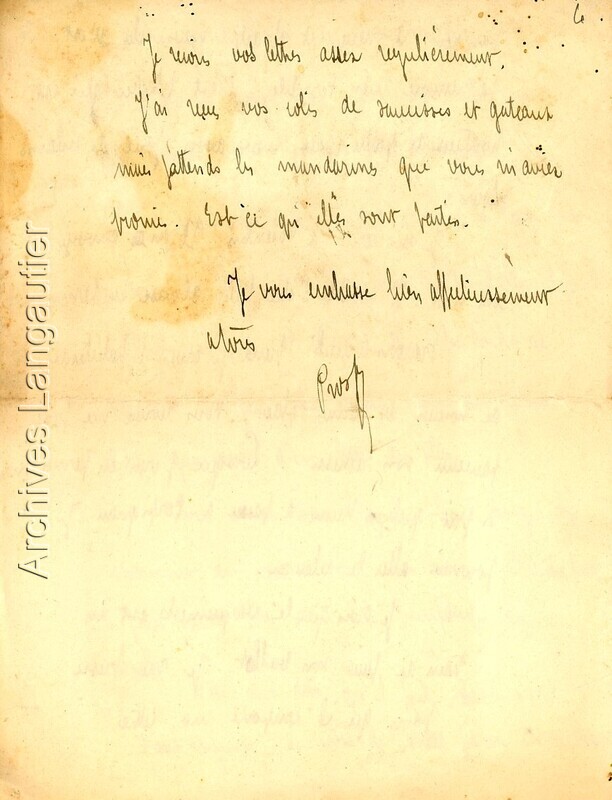 6
Je reçois vos lettres assez regulièrement.
J'ai reçu vos colis de saucisses et gateaux
mais j'attends les mandarines que vous m'aviez
promis. Est-ce qu'elles sont parties.
Je vous embrasse bien affectueusement
a tous
Archives Langautier